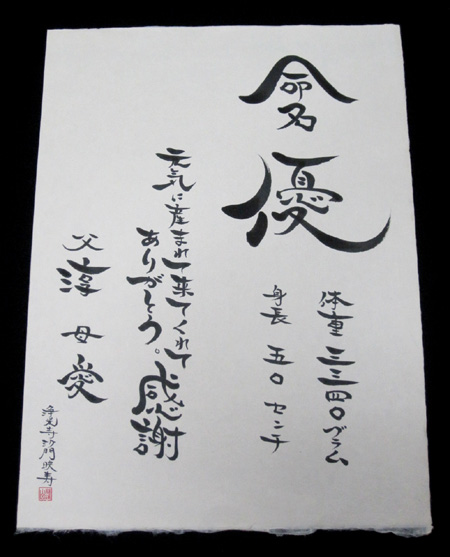 命名
優
体重 三三四〇グラム
身長 五〇センチ
元気に産まれて来てくれて
ありがとう。感謝
父 淳 母 愛
浄光寺沙門映寿